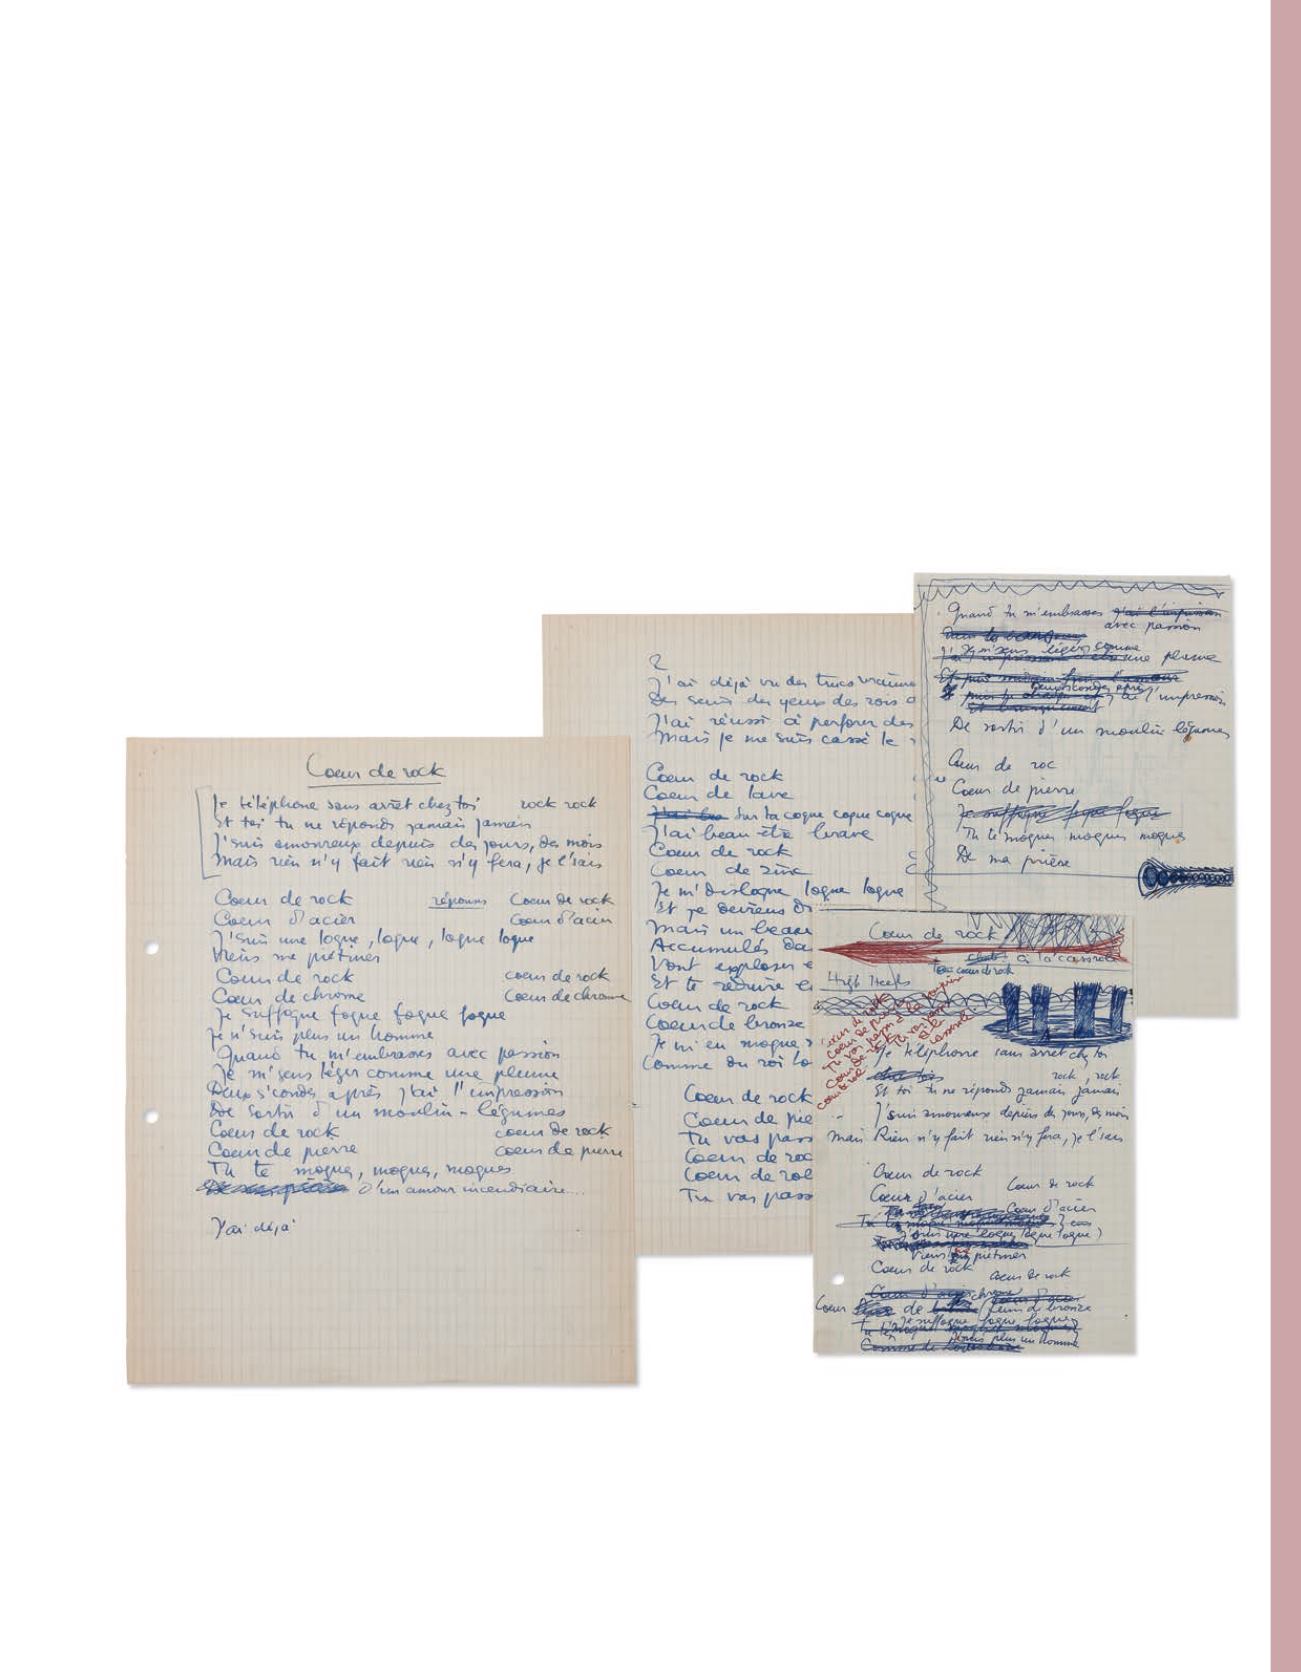 Coeur de rock
Je téléphone sans arrêt chez toi rock rock
Et toi tu ne réponds jamais jamais
J'suis amoureux depuis des jours, des mois
Mais rien n'y fait rien n'y fera, je l'sais
Coeur de rock réponses Coeur de rock
Coeur d'acier Coeur d'acier
J'suis une loque, loque, loque loque
Viens me piétiner
Coeur de rock coeur de rock
Coeur de chrome Coeur de chrome
Je suffoque foque foque foque
Je n'suis plus un homme
Quand tu m'embrasses avec passion
Je m'sens léger comme une plume
Deux s'condes après j'ai l'impression
De sortir d'un moulin-légumes
Coeur de rock coeur de rock
Coeur de pierre coeur de pierre
Tu te moques, moques, moques
D'un amour incendiaire....
J'ai déjà
2
J'ai déjà vu des trucs vraime
Des seins des yeux des rois
J'ai réussi à perforer des
Mais je me suis cassé le
Coeur de rock
Coeur de lave
Sur ta coque coque coque
J'ai beau être brave
Coeur de rock
Coeur de zinc
Je m'disloque loque loque
Et je deviens
Mais un beau
Accumulés da
Vont exploser
Et te réduire e
Coeur de rock
Coeur de bronze
Je m'en moque
Comme du roi
Coeur de rock
Coeur de pie
Tu vas pass
Coeur de roc
Coeur de roc
Tu vas pass
Quand tu m'embrasses j'ai l'impression
avec passion
Je m'sens léger comme
une plume
j'ai l'impression
De sortir d'un moulin légumes
Coeur de roc
Coeur de pierre
Je suffoque foque foque
Tu te moques moques moques
De ma prière
Coeur de rock
à la casserole
Ton coeur de rock
High Heels
Coeur de rock
Je téléphone sans arrêt chez toi
chez toi rock, rock
Et toi tu ne réponds jamais jamais
J'suis amoureux depuis des jours, des mois
Mais Rien n'y fait rien n'y fera, je l'sais
Coeur de rock
Coeur de rock
Coeur d'acier
Coeur d'acier
J'suis une loque loque loque
Viens piétiner
Coeur de rock
Coeur de rock
Coeur de Coeur de bronze
Je suffoque foque foque
J'suis plus un homme